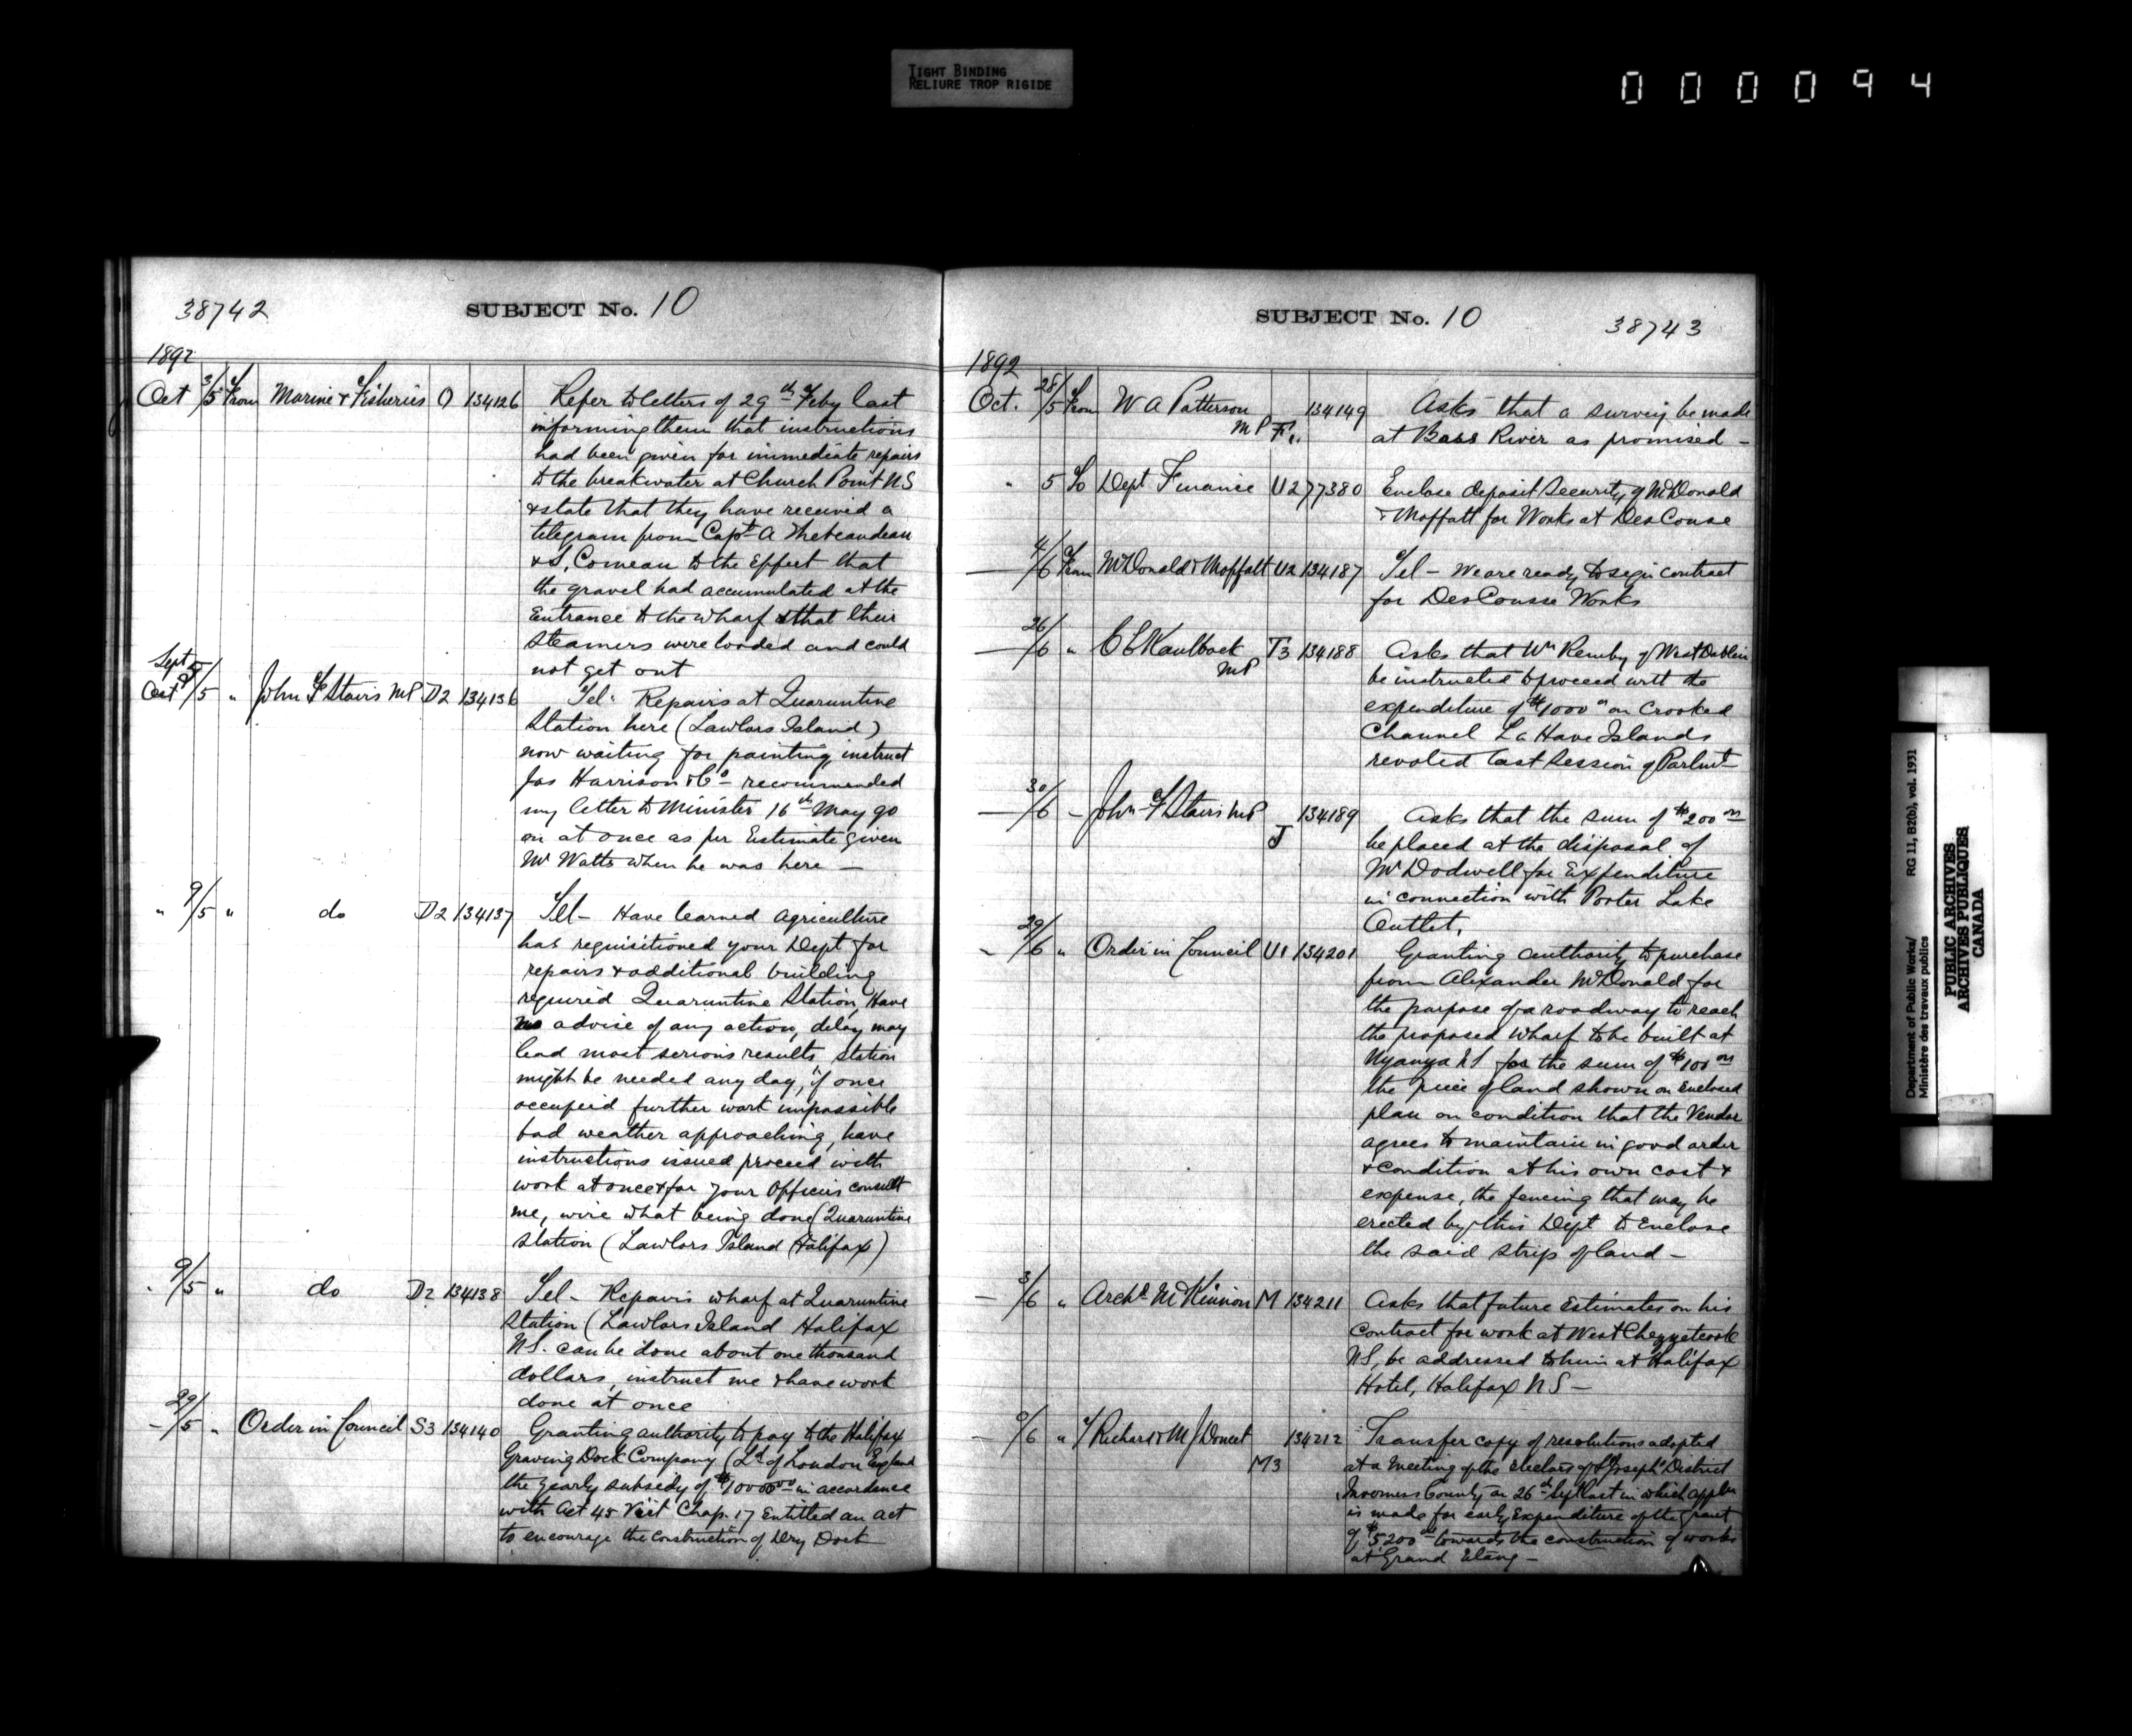 TIGHT BINDING
RELIURE TROP RIGIDE
000094
38742
SUBJECT No. 10
1892
Oct 3/5 From Marine & Fisheries O 134126 Refer to letters of 29th Feby last
informing them that instructions
had been given for immediate repairs
to the breakwater at Church Point NS
& state that they have received a
telegram from Capt A Thebeaudeau
& S. Comeau to the Effect that
the gravel had accumulated at the
Entrance to the wharf & that their
steamers were loaded and could
not get out
Sept
Oct /5 " John F Stairs MP D2 134136 Tel - Repairs at Quaruntine
Station here (Lawlors Island)
now waiting for painting, instruct
Jas Harrison & Co recommended
my letter to Minister 16th May go
on at once as per Estimate given
Mr Watts when he was here —
" 9/5 " do D2 134137 Tel - Have learned Agriculture
has requisitioned your Dept for
repairs & additional building
required Quaruntine Station, Have
no advise of any action, delay may
lead most serious results, station
might be needed any day, if once
occupeid further work impossible
bad weather approaching, have
instructions issued proceed with
work at once & for your Officers consult
me, wire what being done (Quaruntine
station (Lawlors Island Halifax)
" 9/5 " do D2 134138 Tel - Repairs wharf at Quaruntine
Station (Lawlors Island Halifax
NS. can be done about one thousand
dollars, instruct me & have work
done at once
- 29/5 " Order in Council S3 134140 Granting authority to pay to the Halifax
Graving Dock Company (Ld of London England
the yearly subsidy of $10000 00 in accordance
with Act 45 Vict Chap. 17 Entitled an act
to encourage the construction of Dry Dock
SUBJECT No. 10
38743
1892
Oct. 28/5 From W A Patterson MP 134149 Asks that a survey be made
at Bass River as promised -
" 5 To Dept Finance U2 77380 Enclose deposit Security of McDonald
& Moffatt for Works at DesCouse
— 4/6 From McDonald & Moffatt U2 134187 Tel - We are ready to sign contract
for DesCousse Works
— 26/6 " C E Kaulback MP T3 134188 Asks that Wm Remby of West Dublin
be instructed to proceed with the
expenditure of $1000 00 on Crooked
Channel La Have Islands
revoted last Session of Parlmt
— 30/6 - John F Stairs MP J 134189 Asks that the sum of $200 00
be placed at the disposal of
Mr Dodwell for Expenditure
in connection with Porter Lake
Outlet,
- 29/6 " Order in Council U1 134201 Granting authority to purchase
from Alexander McDonald for
the purpose of a roadway to reach
the proposed wharf to be built at
Nyanya NS for the sum of $100 00
the piece of land shown on Enclosed
plan on condition that the Vendor
agrees to maintain in good order
& condition at his own cost &
expense, the fencing that may be
erected by this Dept to Enclose
the said strip of land -
— 3/6 " Archd McKinnon M 134211 Asks that future Estimates on his
Contract for work at West Chezzetcook
NS, be addressed to him at Halifax
Hotel, Halifax NS -
— /6 " Richard & M J Doucet M3 134212 Transfer copy of resolutions adopted
at a meeting of the electors of St Joseph's District
Inverness County on 26th Sept last in which appln
is made for early Expenditure of the grant
of $5200 00 towards the construction of works
at Grand Etang -
Department of Public Works/ RG 11, B2(b), vol. 1931
Ministère des travaux publics
PUBLIC ARCHIVES
ARCHIVES PUBLIQUES
CANADA